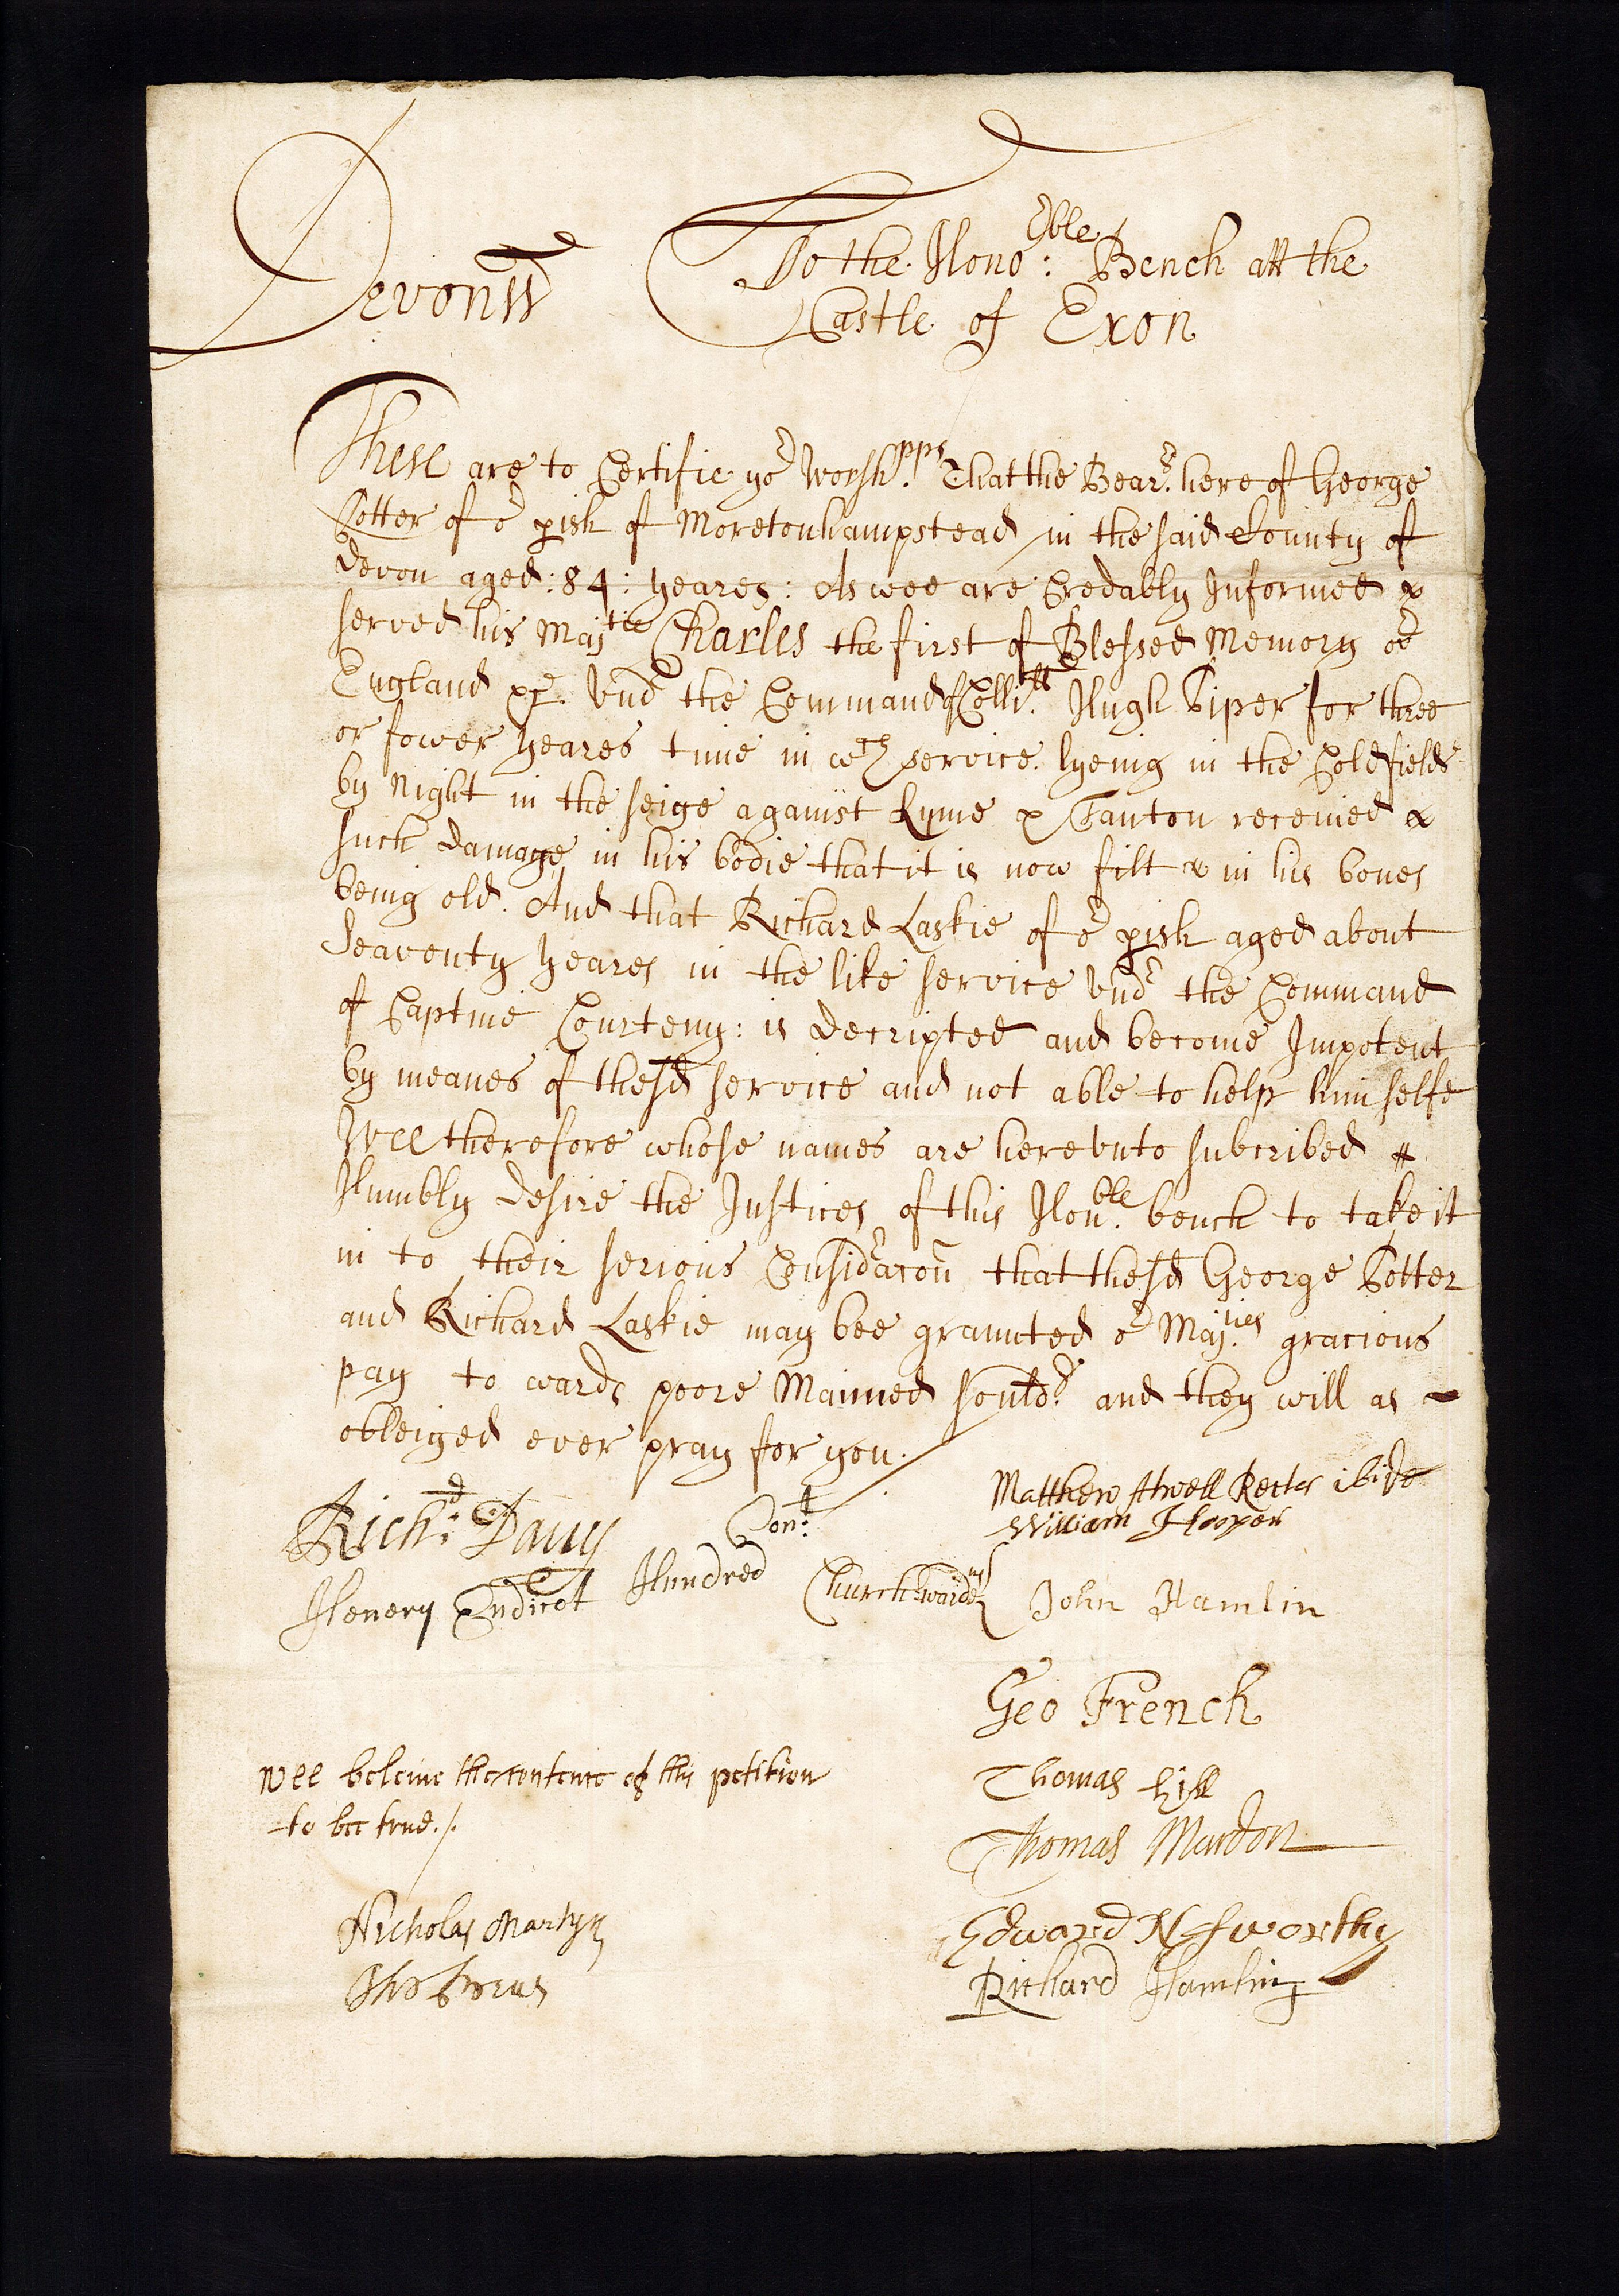 Devon ss
To the Hono:rble Bench att the
Castle of Exon
These are to Certifie yor Worsh.pps That the Bearr. here of George
Potter of or pish of Moretonhampstead in the said County of
devon aged :84: yeares: As wee are Credably Informed
served his Majtie Charles the first of Blessed Memory or
England &c Vndr the Command of Colli:ll Hugh Piper for three
or fower yeares time in wch service lyeing in the Cold fields
by Night in the seige against Lyme & Tanton receiued
such damage in his bodie that it is now filt in his bones
being old. And that Richard Laskie of or pish aged about
Seaventy yeares in the like service Vndr the Command
of Captine Courteny: is decripted and become Impotent
by meanes of the sd service and not able to help himselfe
Wee therefore whose names are herevnto subcribed
Humbly desire the Justices of this Hon.ble bench to take it
in to their serious Considracon that the sd George Potter
and Richard Laskie may bee graunted or Maj.ties gracious
pay to wards poore Maimed Souldr. and they will as
obleiged ever pray for you.
Matthew Atwell Rector ibide
Rich:d Dauy Con:t William Hooper
Henery Endicot Hundred Churchwardens John Hamlin
Geo French
Wee beleiue the contente of this petition Thomas Hill
to bee true./. Thomas Mardon
Nicholas Martyn Edward Nosworthy
Tho Richard Hamling